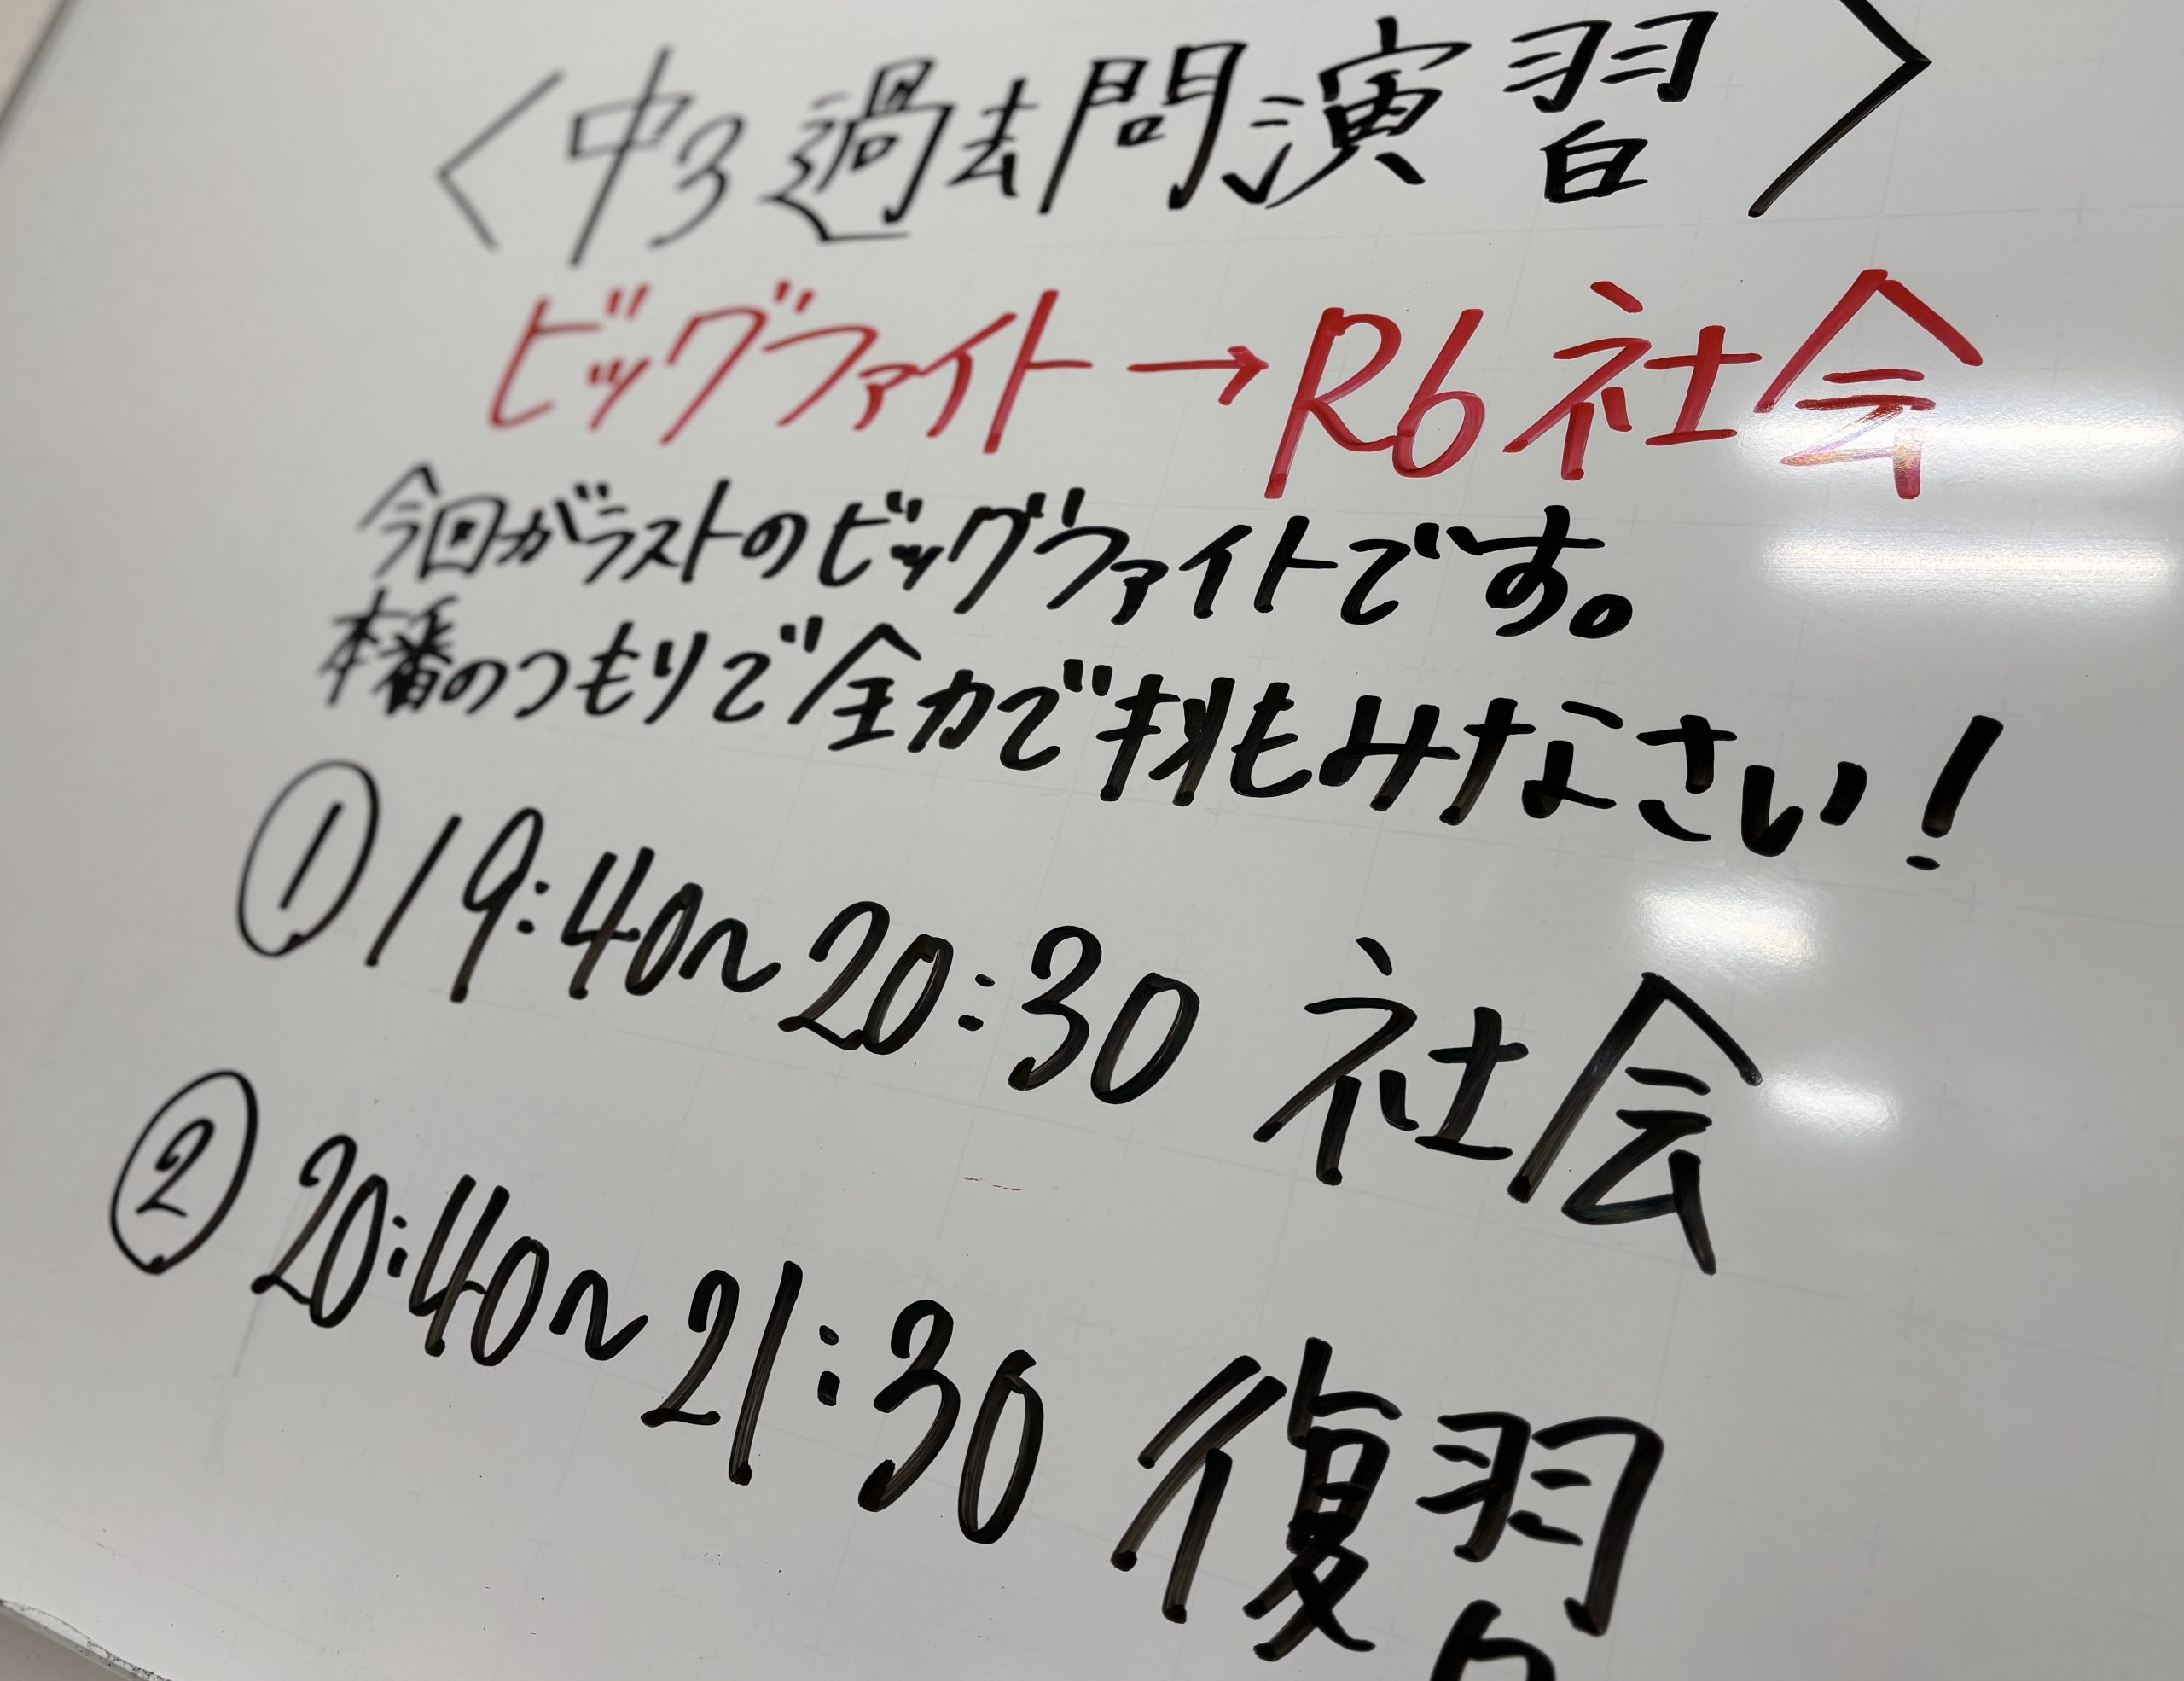 〈中3過去問演習〉
ビッグファイト→R6社会
今回がラストのビッグファイトです。
本番のつもりで全力で挑もみなさい!
①19:40~20:30 社会
②20:40~21:30 復習